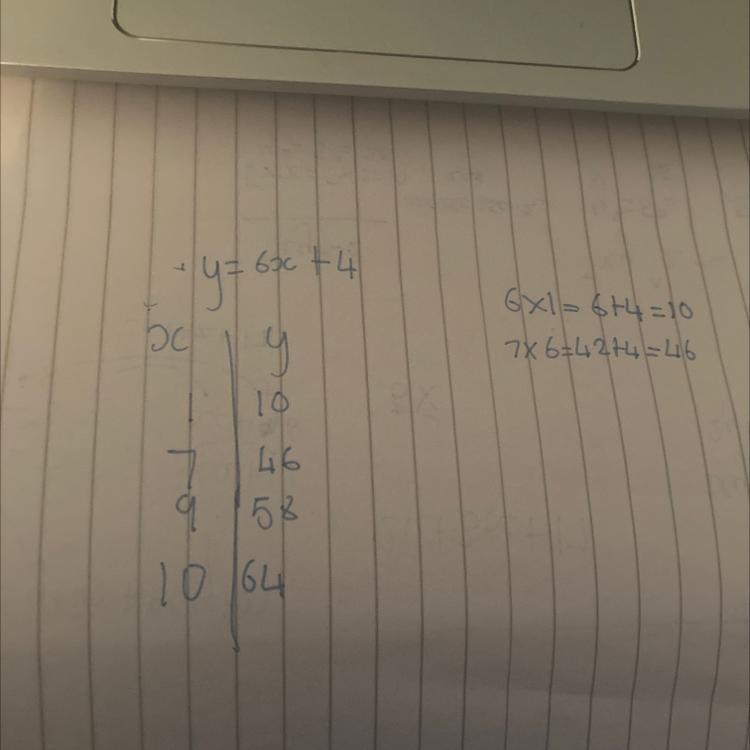 y=6x+4
x y
1 10
7 46
9 58
10 64
6x1=6+4=10
7x6=42+4=46